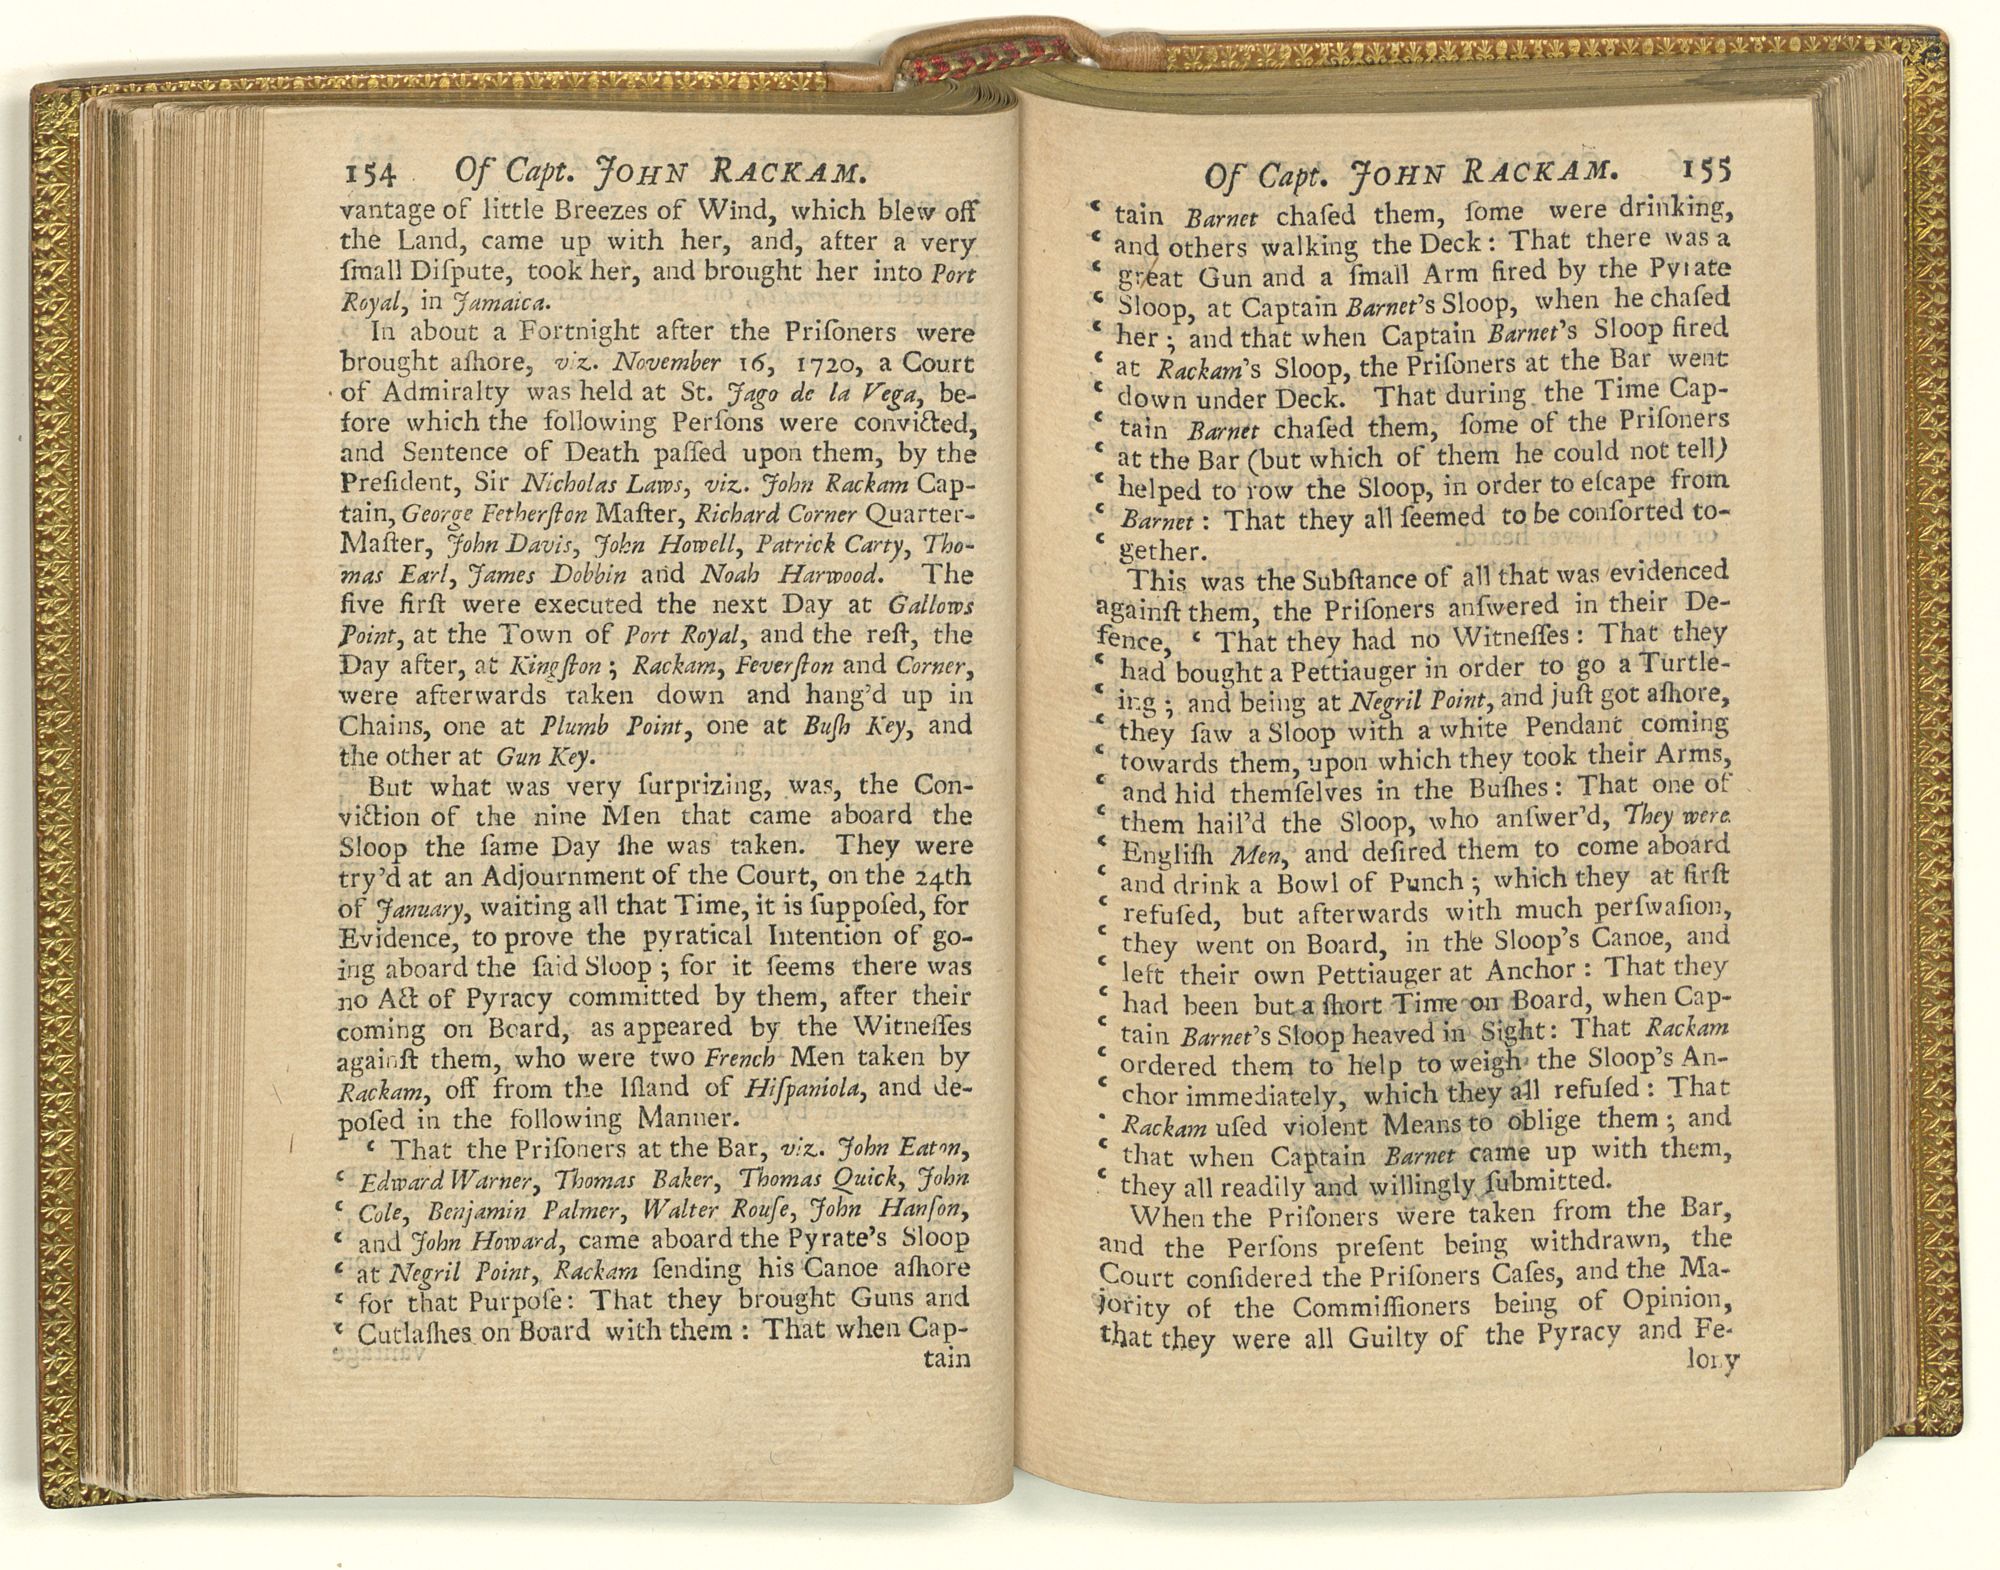 154 Of Capt. JOHN RACKAM.
vantage of little Breezes of Wind, which blew off
the Land, came up with her, and, after a very
ſmall Diſpute, took her, and brought her into Port
Royal, in Jamaica.
In about a Fortnight after the Priſoners were
brought aſhore, viz. November 16, 1720, a Court
of Admiralty was held at St. Jago de la Vega, be-
fore which the following Perſons were convicted,
and Sentence of Death paſſed upon them, by the
Preſident, Sir Nicholas Laws, viz. John Rackam Cap-
tain, George Fetherſton Maſter, Richard Corner Quarter-
Maſter, John Davis, John Howell, Patrick Carty, Tho-
mas Earl, James Dobbin and Noah Harwood. The
five firſt were executed the next Day at Gallows
Point, at the Town of Port Royal, and the reſt, the
Day after, at Kingſton; Rackam, Feverſton and Corner,
were afterwards taken down and hang'd up in
Chains, one at Plumb Point, one at Buſh Key, and
the other at Gun Key.
But what was very ſurprizing, was, the Con-
viction of the nine Men that came aboard the
Sloop the ſame Day ſhe was taken. They were
try'd at an Adjournment of the Court, on the 24th
of January, waiting all that Time, it is ſuppoſed, for
Evidence, to prove the pyratical Intention of go-
ing aboard the ſaid Sloop; for it ſeems there was
no Act of Pyracy committed by them, after their
coming on Board, as appeared by the Witneſſes
againſt them, who were two French Men taken by
Rackam, off from the Iſland of Hiſpaniola, and de-
poſed in the following Manner.
‘ That the Priſoners at the Bar, viz. John Eaton,
‘ Edward Warner, Thomas Baker, Thomas Quick, John
‘ Cole, Benjamin Palmer, Walter Rouſe, John Hanſon,
‘ and John Howard, came aboard the Pyrate's Sloop
‘ at Negril Point, Rackam ſending his Canoe aſhore
‘ for that Purpoſe: That they brought Guns and
‘ Cutlaſhes on Board with them: That when Cap-
tain
Of Capt. JOHN RACKAM. 155
‘ tain Barnet chaſed them, ſome were drinking,
‘ and others walking the Deck: That there was a
‘ great Gun and a ſmall Arm fired by the Pyrate
‘ Sloop, at Captain Barnet's Sloop, when he chaſed
‘ her; and that when Captain Barnet's Sloop fired
‘ at Rackam's Sloop, the Priſoners at the Bar went
‘ down under Deck. That during the Time Cap-
‘ tain Barnet chaſed them, ſome of the Priſoners
‘ at the Bar (but which of them he could not tell)
‘ helped to row the Sloop, in order to eſcape from
‘ Barnet: That they all ſeemed to be conſorted to-
‘ gether.
This was the Subſtance of all that was evidenced
againſt them, the Priſoners anſwered in their De-
fence, ‘ That they had no Witneſſes: That they
‘ had bought a Pettiauger in order to go a Turtle-
‘ ing; and being at Negril Point, and juſt got aſhore,
‘ they ſaw a Sloop with a white Pendant coming
‘ towards them, upon which they took their Arms,
‘ and hid themſelves in the Buſhes: That one of
‘ them hail'd the Sloop, who anſwer'd, They were
‘ Engliſh Men, and deſired them to come aboard
‘ and drink a Bowl of Punch; which they at firſt
‘ refuſed, but afterwards with much perſwaſion,
‘ they went on Board, in the Sloop's Canoe, and
‘ left their own Pettiauger at Anchor: That they
‘ had been but a ſhort Time on Board, when Cap-
‘ tain Barnet's Sloop heaved in Sight: That Rackam
‘ ordered them to help to weigh the Sloop's An-
‘ chor immediately, which they all refuſed: That
‘ Rackam uſed violent Means to oblige them; and
‘ that when Captain Barnet came up with them,
‘ they all readily and willingly ſubmitted.
When the Priſoners were taken from the Bar,
and the Perſons preſent being withdrawn, the
Court conſidered the Priſoners Caſes, and the Ma-
jority of the Commiſſioners being of Opinion,
that they were all Guilty of the Pyracy and Fe-
lony